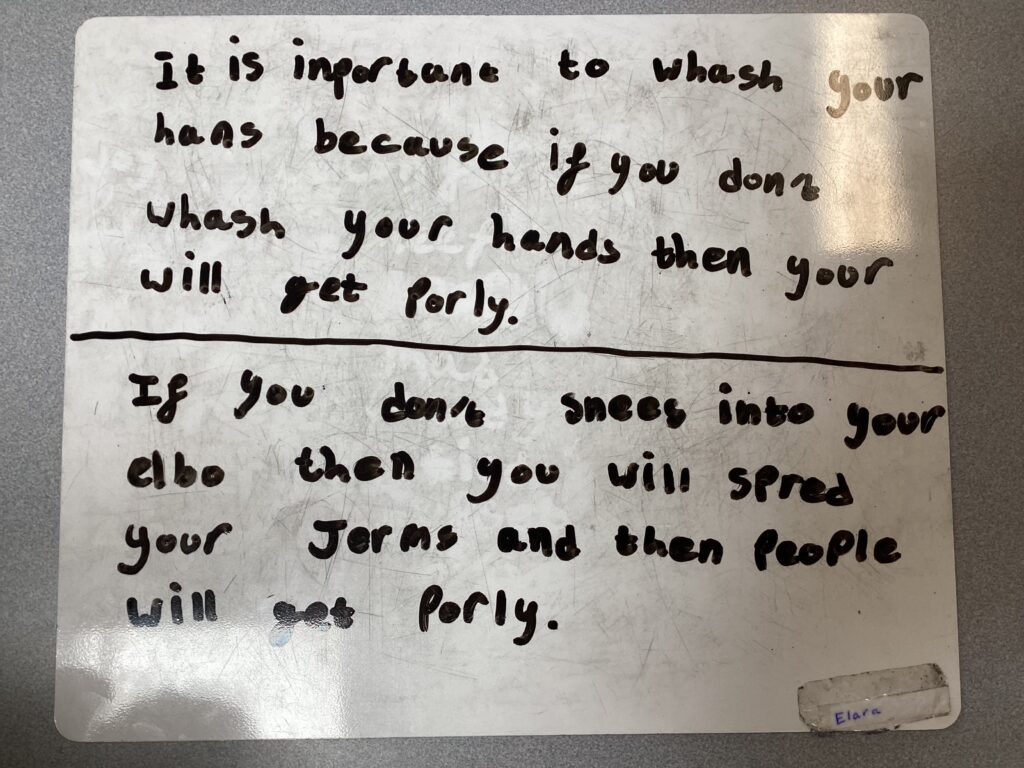 It is inportant to whash your
hans because if you don't
whash your hands then your
will get porly.
If you don't snees into your
elbo then you will spred
your Jerms and then people
will get porly.
Elara